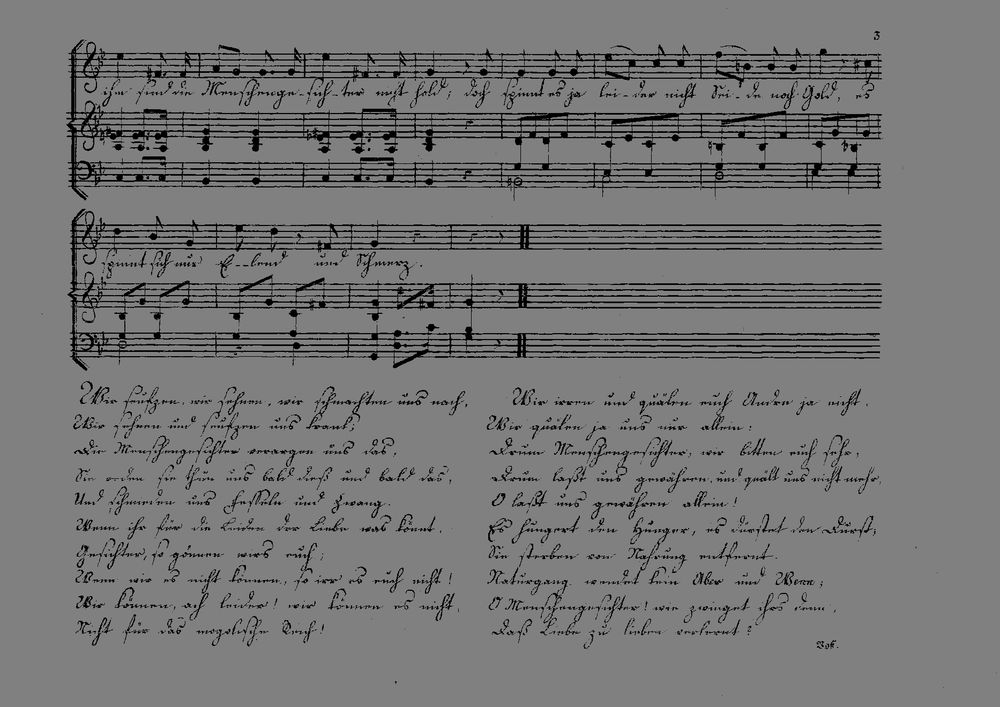 3
ihm sind die Menschenge-sich-ter nicht hold; doch spinnt es ja lei-der nicht Sei-de noch Gold, es
spinnt sich nur E--lend und Schmerz.
Wir seufzen, wir sehnen, wir schmachten uns nach,
Wir sehnen und seufzen uns krank;
Die Menschengesichter verargen uns das,
Sie reden sie thun uns bald dieß und bald das,
Und schmieden uns Fesseln und Zwang.
Wenn ihr für die Leiden der Liebe was könnt,
Gesichter, so gönnen wirs euch;
Wenn wir es nicht können, so irr es euch nicht!
Wir können, ach leider! wir können es nicht,
Nicht für das mogolische Reich!
Wir irren und quälen euch Andre ja nicht.
Wir quälen ja uns nur allein:
Drum Menschengesichter, wir bitten euch sehr,
Drum laßt uns gewähren, und quält uns nicht mehr,
O laßt uns gewähren allein!
Es hungert den Hunger, es dürstet den Durst;
Sie sterben von Nahrung entfernt.
Naturgang wendet kein Aber und Wenn;
O Menschengesichter! wie zwinget ihrs denn,
Daß Liebe zu lieben verlernt?